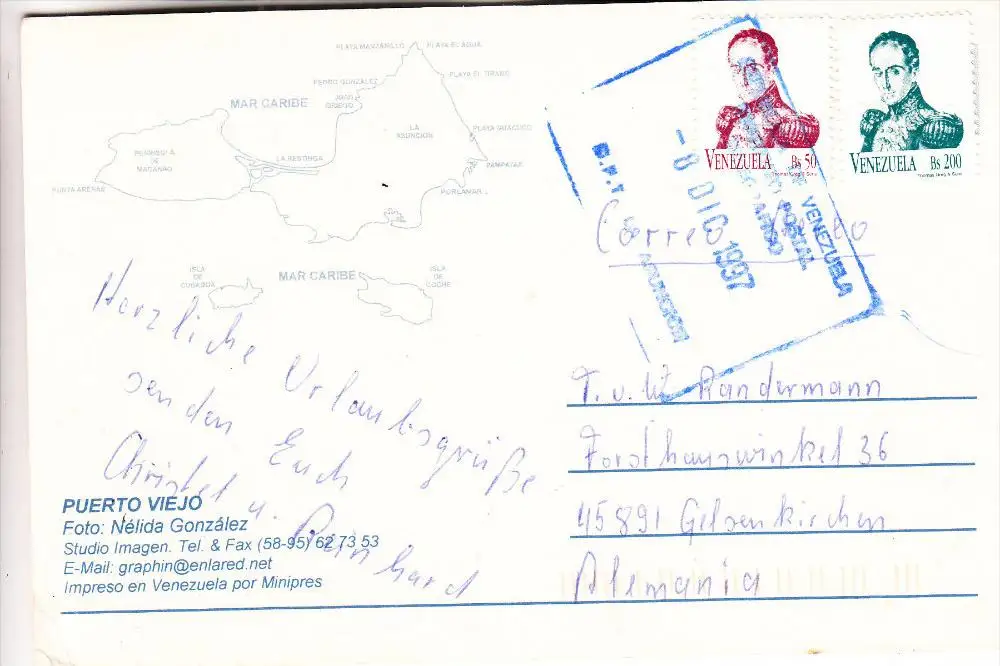 PLAYA MANZANILLO
PLAYA EL AGUA
PLAYA EL TIRANO
PEDRO GONZALEZ
JUAN
GRIEGO
MAR CARIBE
LA
ASUNCION
PLAYA GUACUCO
PENINSULA
DE
MACANAO
LA RESTINGA
PAMPATAR
PUNTA ARENAS
PORLAMAR
ISLA
DE
CUBAGUA
MAR CARIBE
ISLA
DE
COCHE
VENEZUELA Bs 50
Thomas Greg & Sons
VENEZUELA Bs 200
Thomas Greg & Sons
VENEZUELA
POSTAL
-8 DIC 1997
ASUNCION
Correo
Herzliche Urlaubsgrüße
senden Euch
Christel u. Reinhard
T. u. W. Randermann
Forsthauswinkel 36
45891 Gelsenkirchen
Alemania
PUERTO VIEJO
Foto: Nélida González
Studio Imagen. Tel. & Fax (58-95) 62 73 53
E-Mail: graphin@enlared.net
Impreso en Venezuela por Minipres